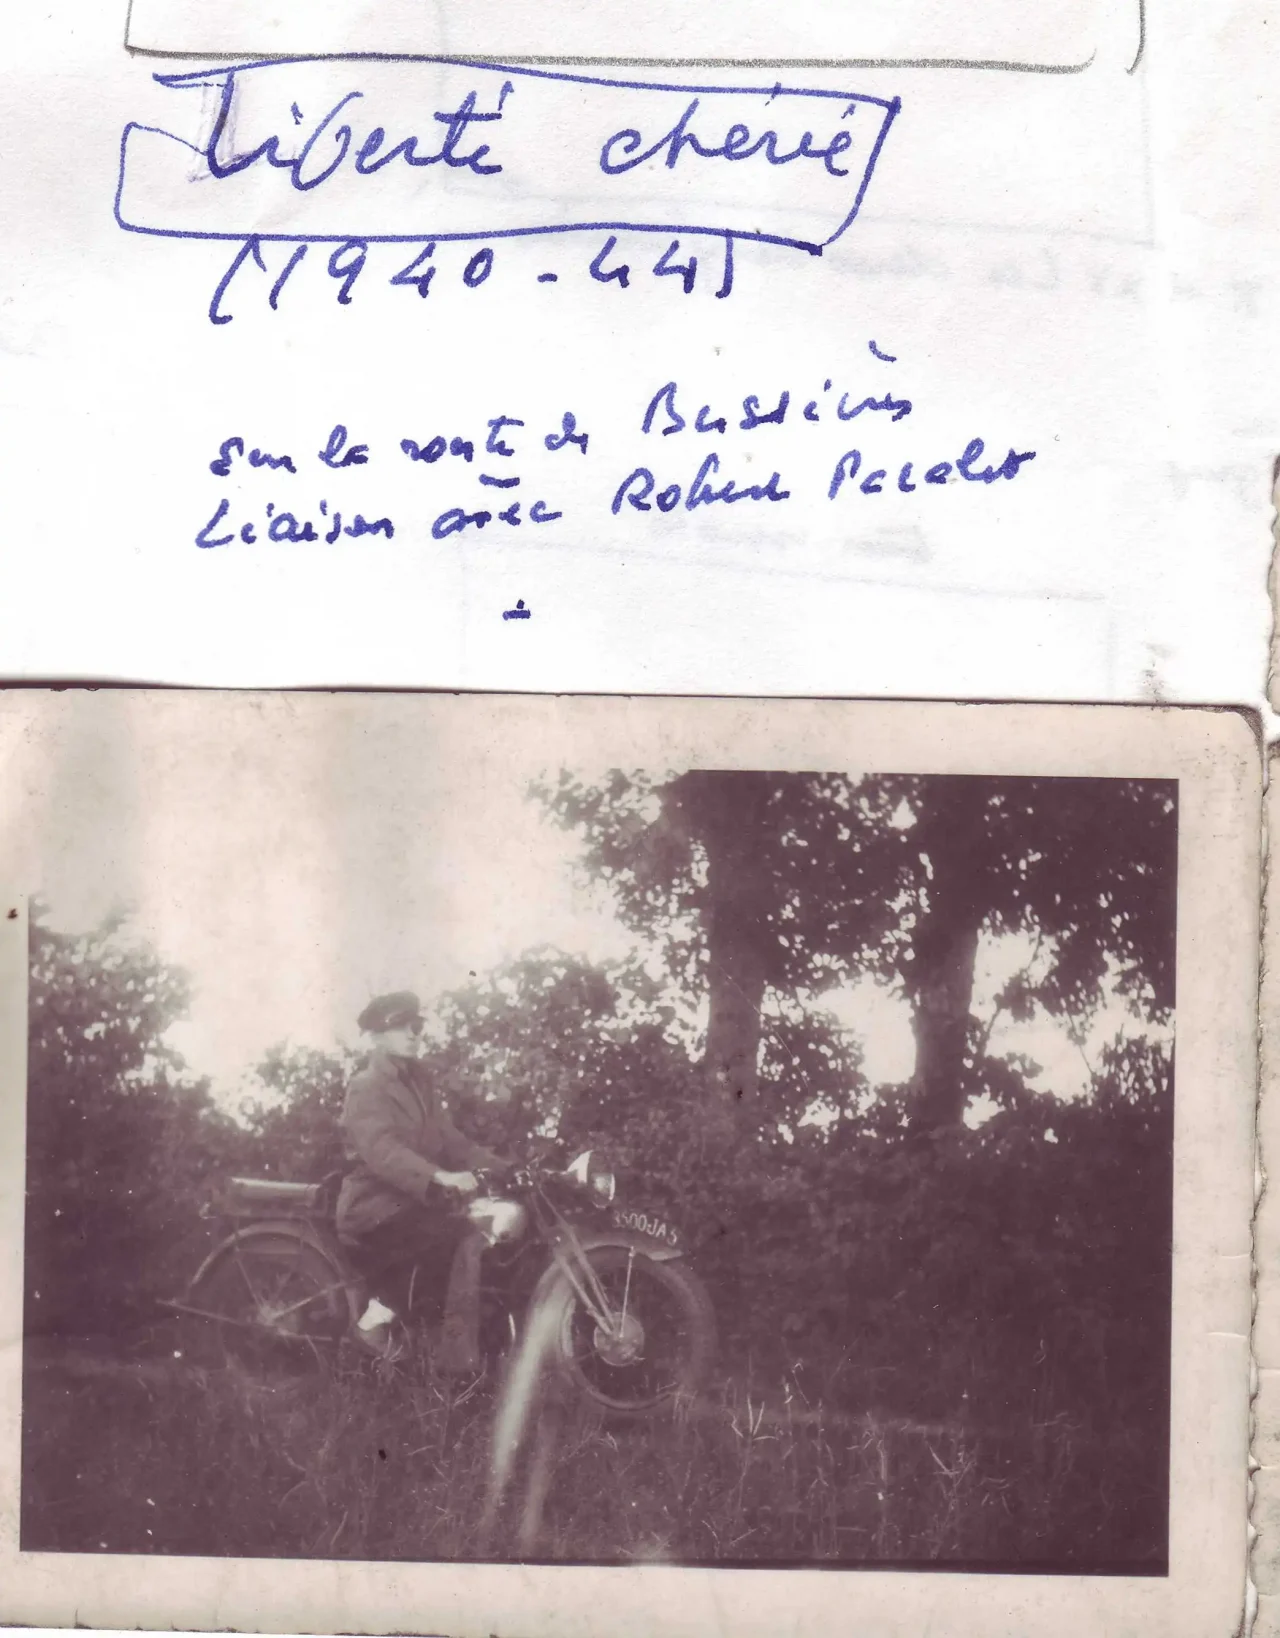 Liberté chérie
(1940-44)
sur la route de Bussières
Liaison avec Robert
500 JA 5